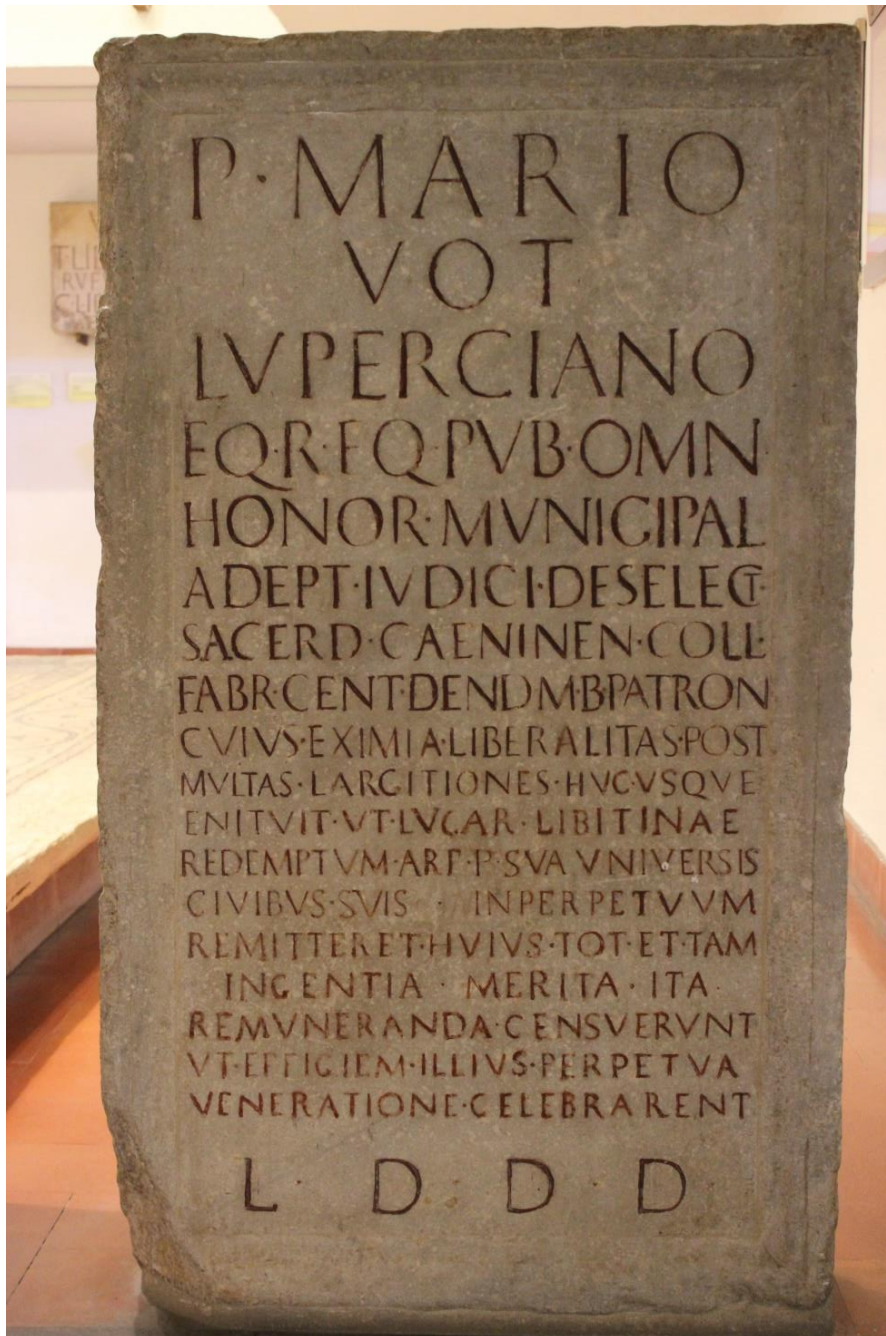 P · MARIO
VOT
LVPERCIANO
EQ · R · F Q · PVB · OMN
HONOR · MVNICIPAL
ADEPT · IVDICI · DESELECT ·
SACERD · CAENINEN · COLL ·
FABR · CENT · DENDM · B · PATRON
CVIVS · EXIMIA · LIBERALITAS · POST
MVLTAS · LARGITIONES · HVC · VSQVE
ENITVIT · VT · LVCAR · LIBITINAE
REDEMPTVM · A · P · SVA VNIVERSIS
CIVIBVS · SVIS · INPERPETVVM
REMITTERET · HVIVS · TOT · ET · TAM
INGENTIA · MERITA · ITA
REMVNERANDA · CENSVERVNT
VT · EFFIGIEM · ILLIVS · PERPETVA
VENERATIONE · CELEBRARENT
L · D · D · D